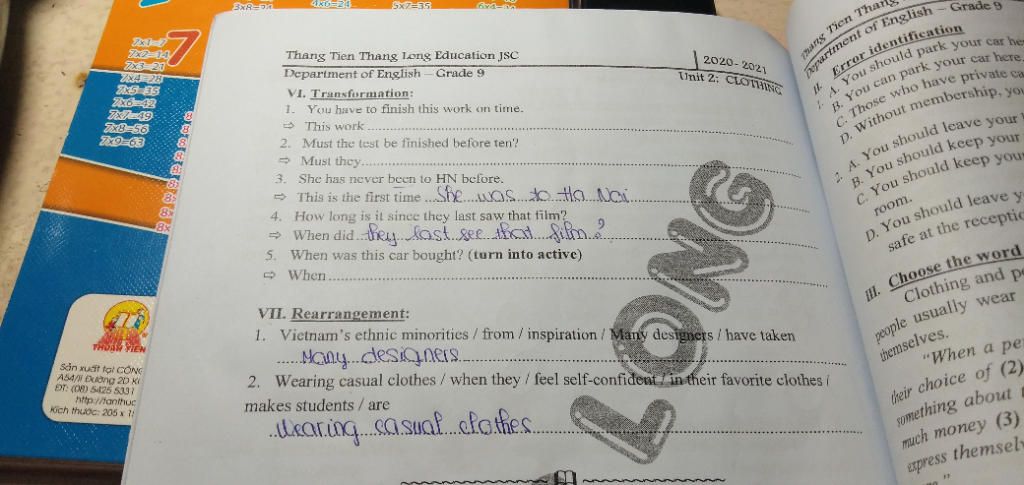 3x8=24
4x6=24
5x7=35
7x1=7
7x2=14
7x3=21
7x4=28
7x5=35
7x6=42
7x7=49
7x8=56
7x9=63
7
THUẬN TIẾN
Sản xuất tại CÔNG
A54/II Đường 2D
ĐT: (08) 5425 5331
Kích thước: 205 x
Thang Tien Thang Long Education JSC
2020- 2021
Department of English – Grade 9
Unit 2: CLOTHING
VI. Transformation:
1. You have to finish this work on time.
⇨ This work
2. Must the test be finished before ten?
⇨ Must they
3. She has never been to HN before.
⇨ This is the first time She was to Ha Noi
4. How long is it since they last saw that film?
⇨ When did they last see that film?
5. When was this car bought? (turn into active)
⇨ When
VII. Rearrangement:
1. Vietnam's ethnic minorities / from / inspiration / Many designers / have taken
Many designers
2. Wearing casual clothes / when they / feel self-confident / in their favorite clothes /
makes students / are
Wearing casual clothes
LONG
Thang Tien Thang
Department of English – Grade 9
II. Error identification
1. A. You should park your car here.
B. You can park your car here.
C. Those who have private
D. Without membership, you
2. A. You should leave your
B. You should keep your
C. You should keep your
room.
D. You should leave
safe at the
III. Choose the word
Clothing and
people usually wear
themselves.
"When a
their choice of (2)
something about
much money (3)
express